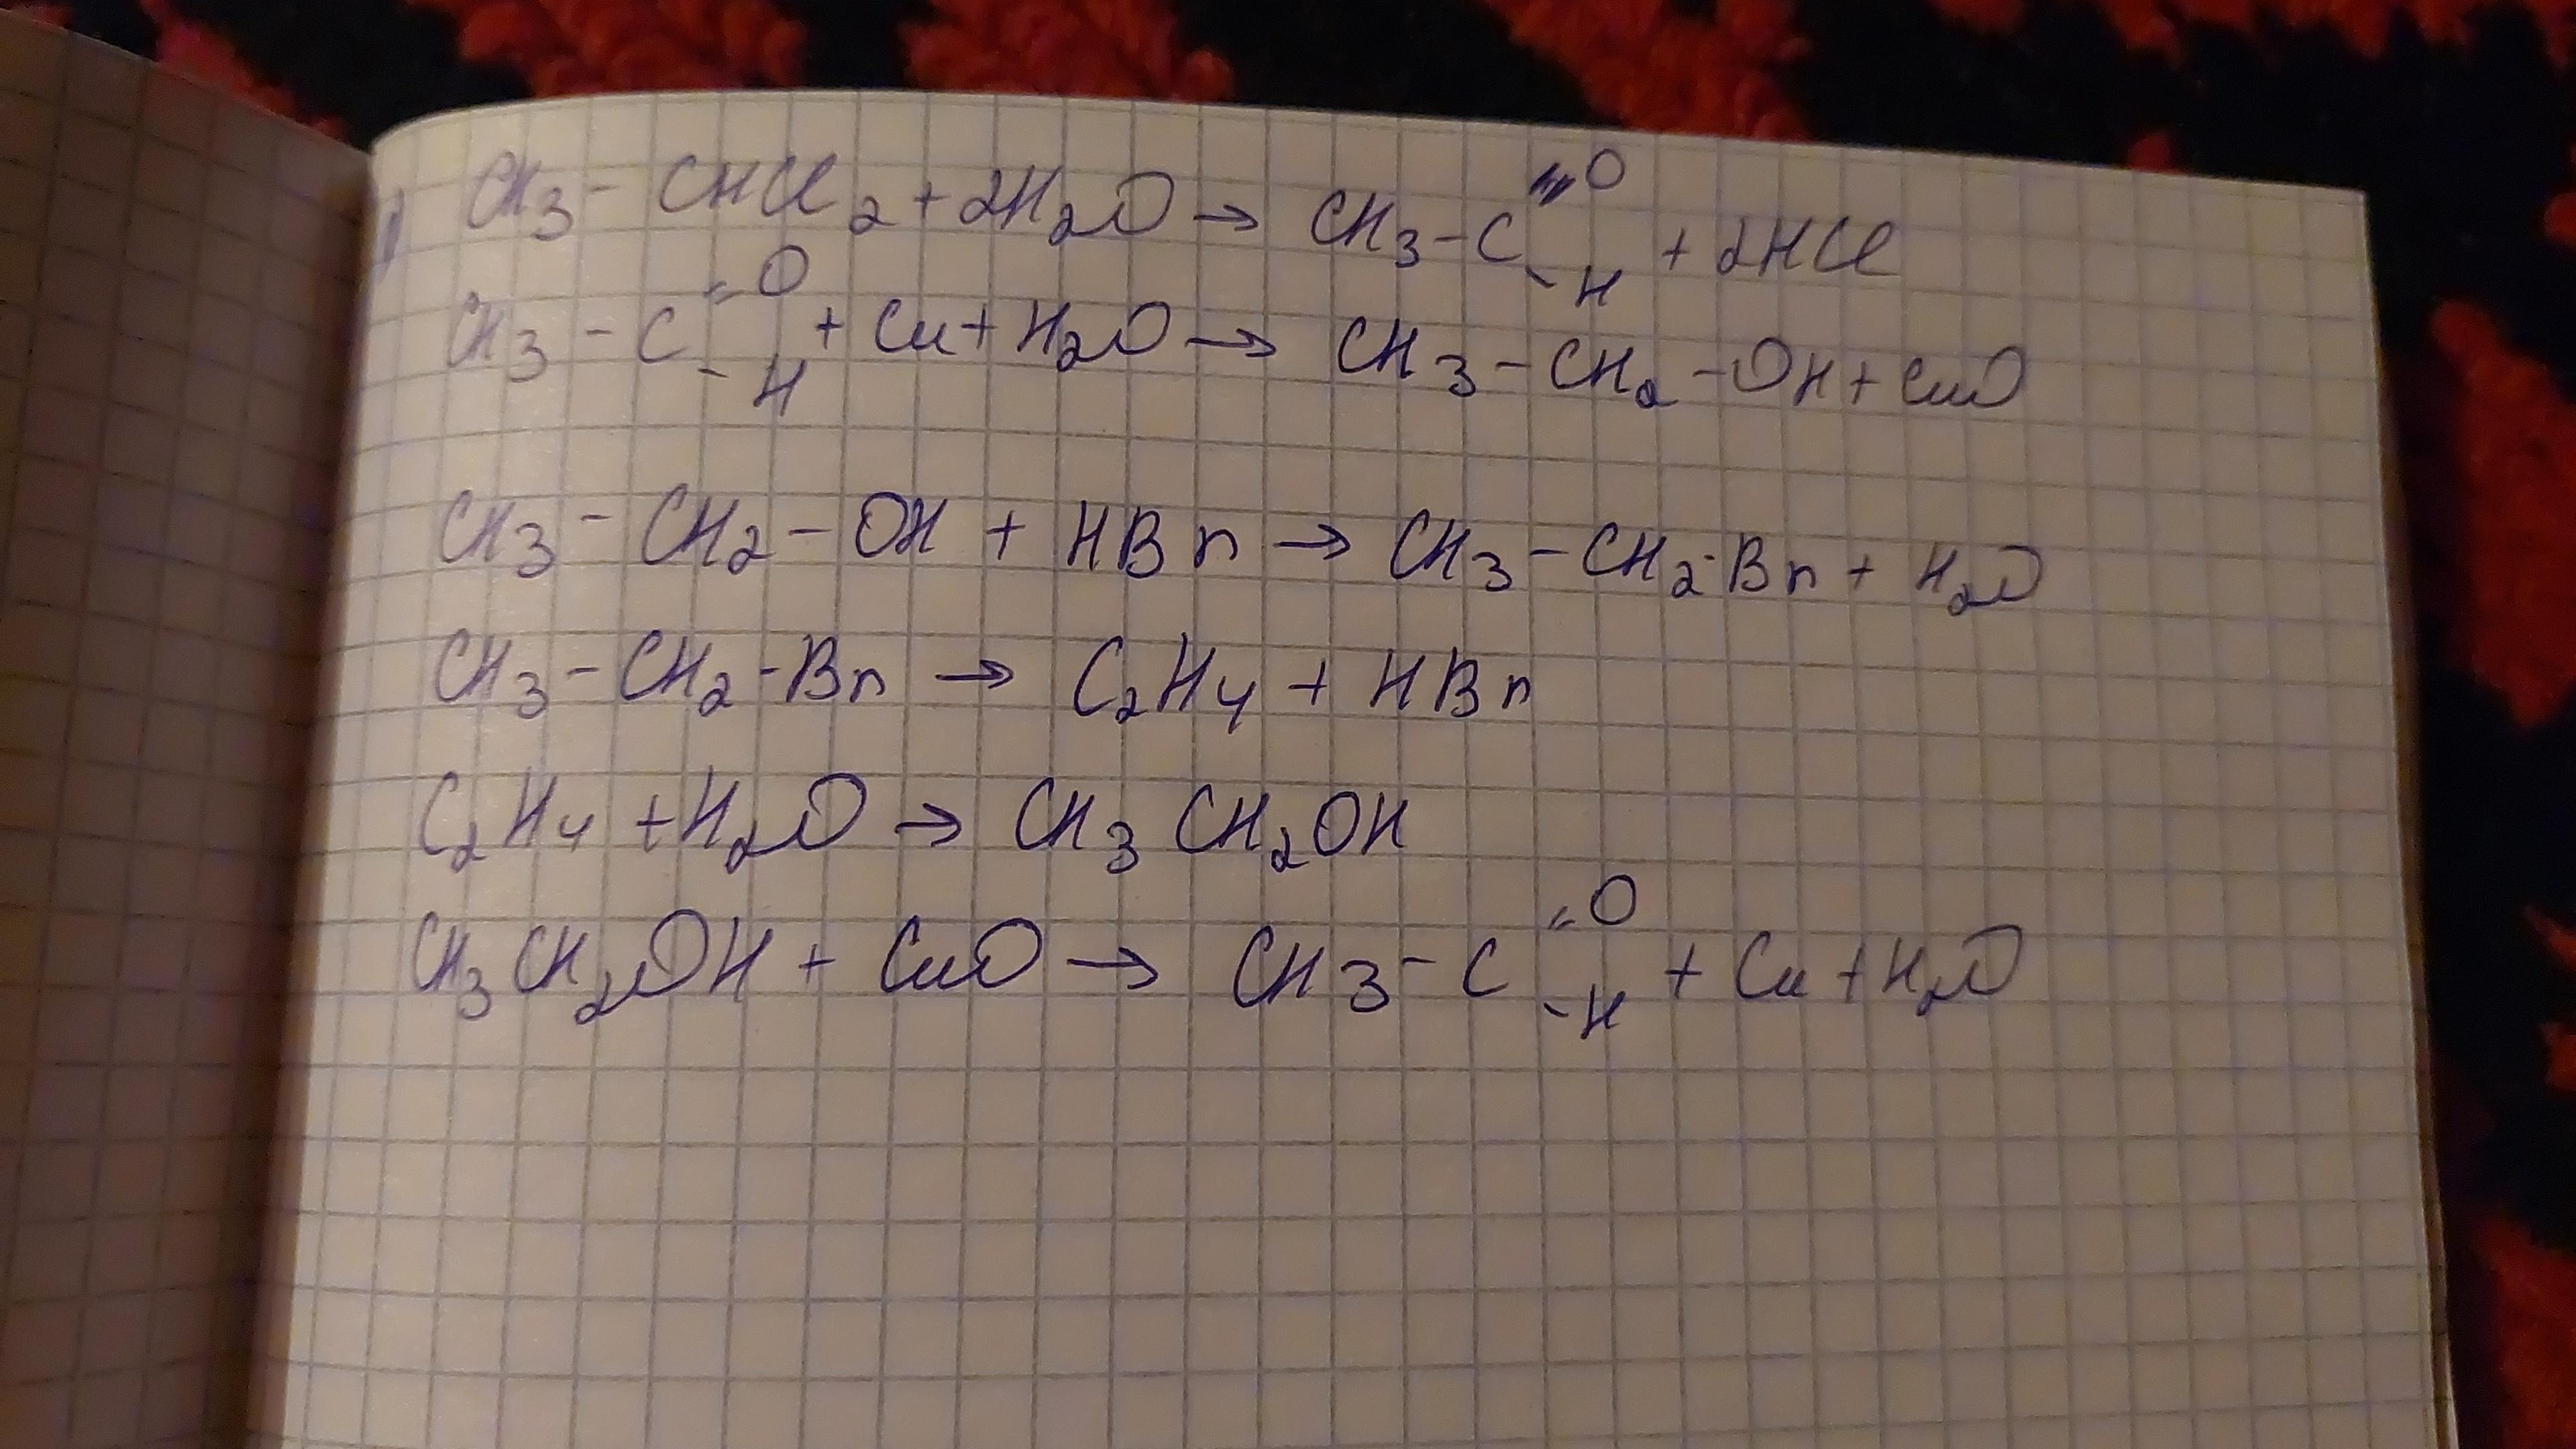 CH3 - CHCl2 + 2H2O → CH3 - C =O -H + 2HCl
CH3 - C =O -H + Cu + H2O → CH3 - CH2 - OH + CuO
CH3 - CH2 - OH + HBr → CH3 - CH2 - Br + H2O
CH3 - CH2 - Br → C2H4 + HBr
C2H4 + H2O → CH3 CH2OH
CH3 CH2OH + CuO → CH3 - C =O -H + Cu + H2O